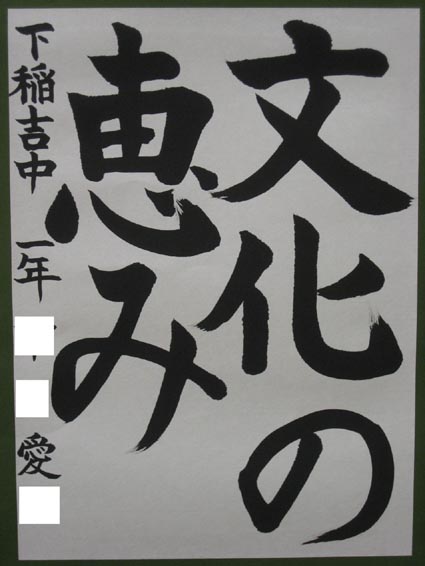 文化の
恵み
下稲吉中 一年 愛